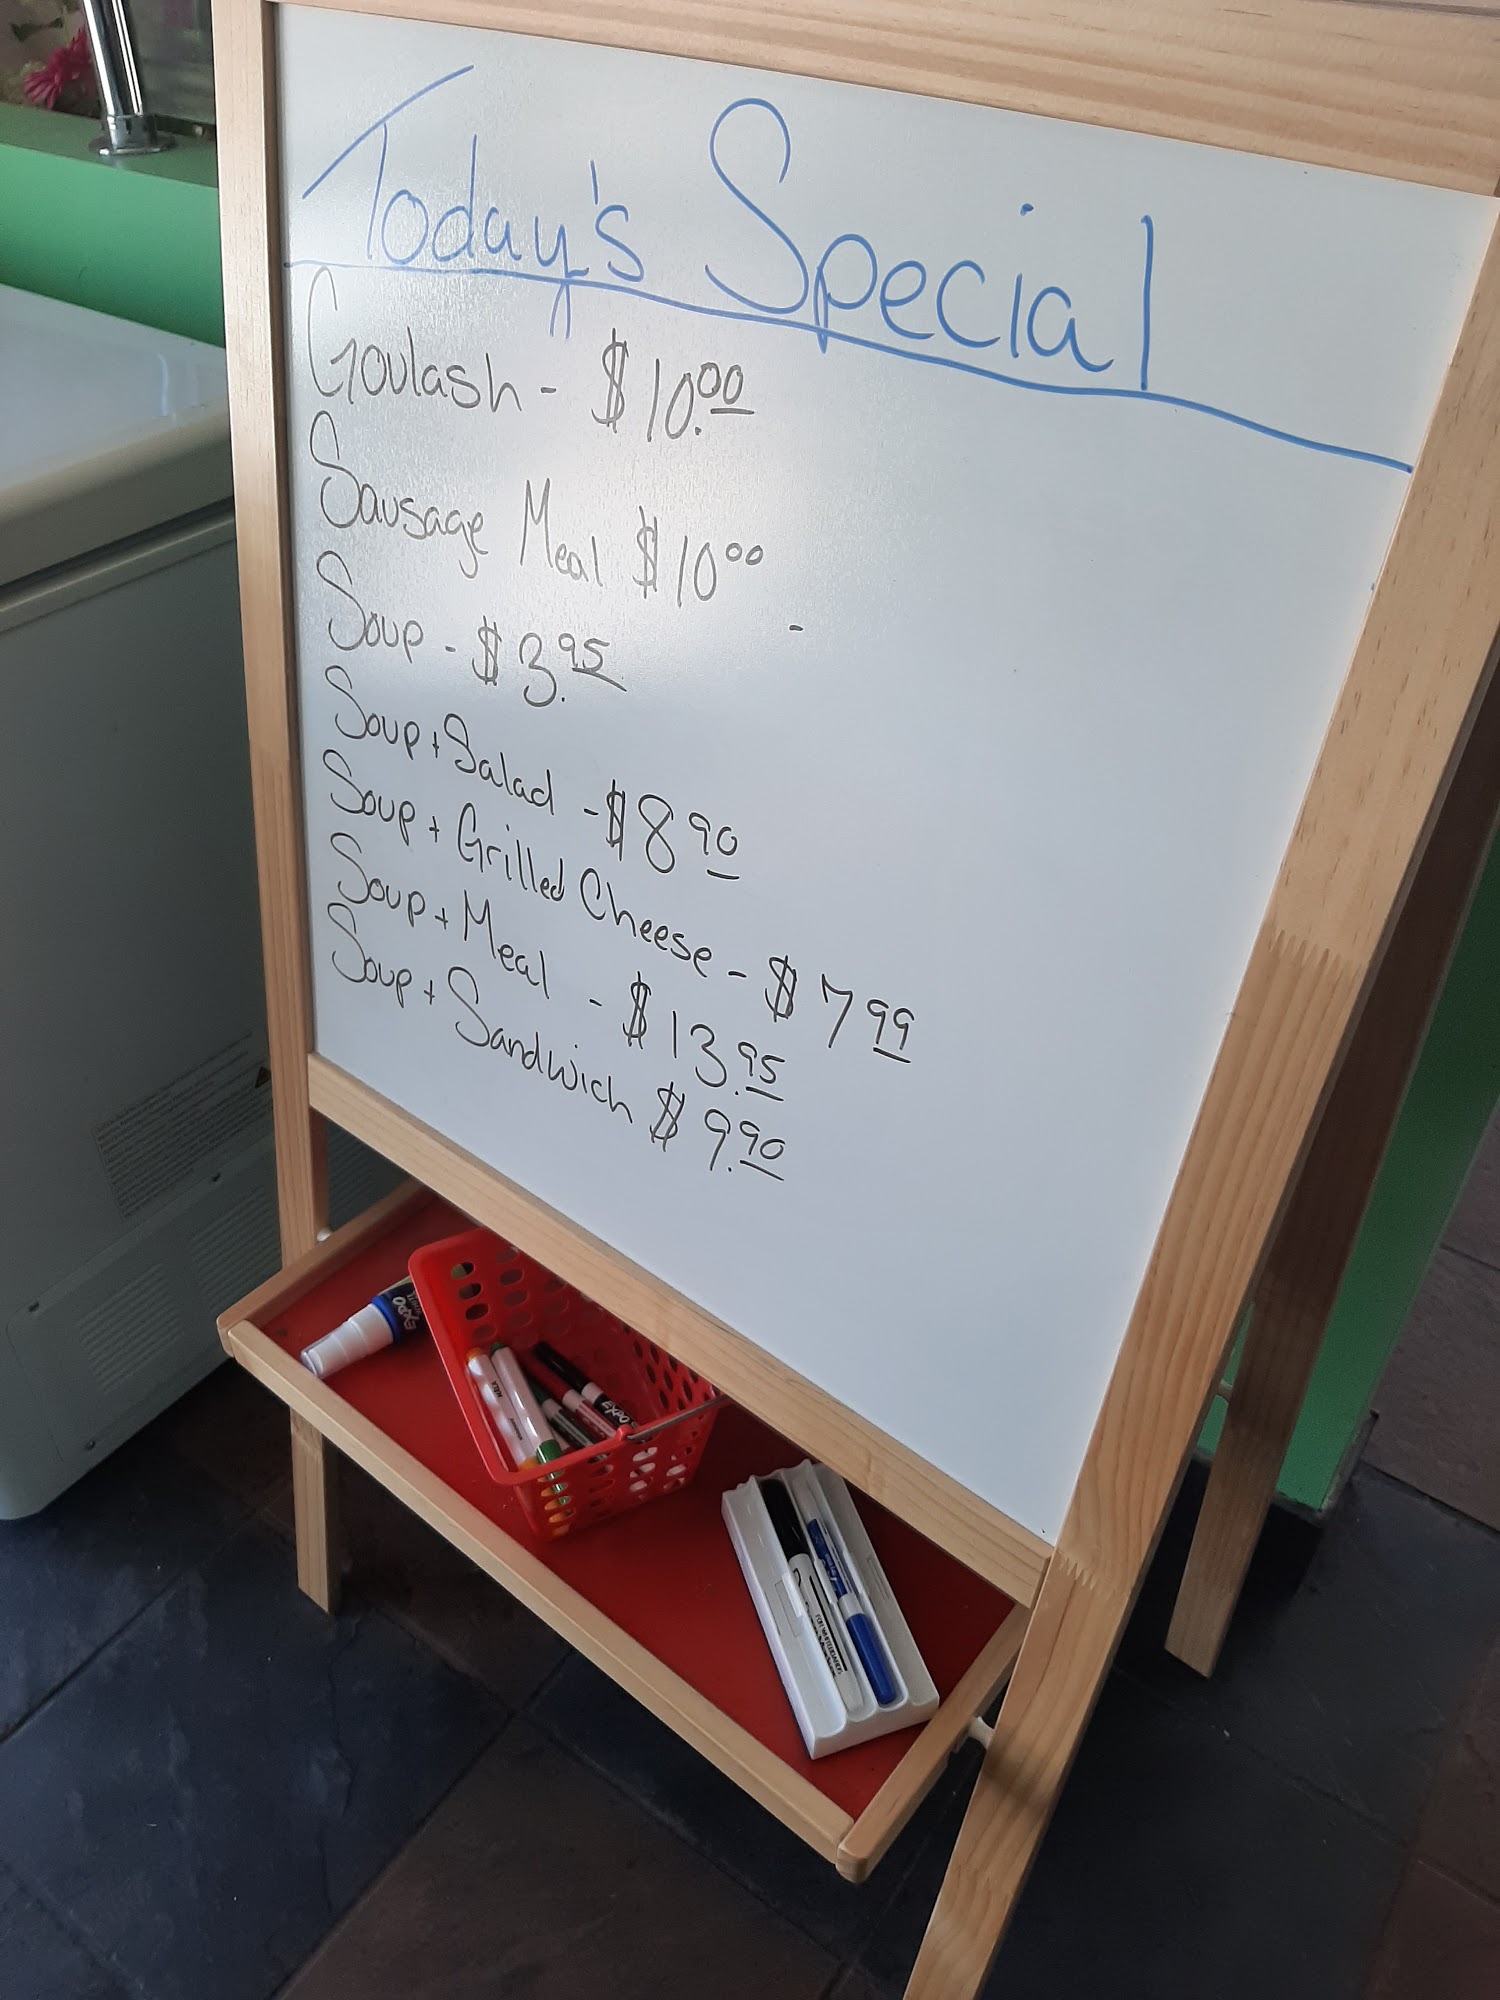 Today's Special
Goulash - $10.00
Sausage Meal $10.00
Soup - $3.95
Soup + Salad - $8.90
Soup + Grilled Cheese - $7.99
Soup + Meal - $13.95
Soup + Sandwich $9.90
EXPO
EXPO